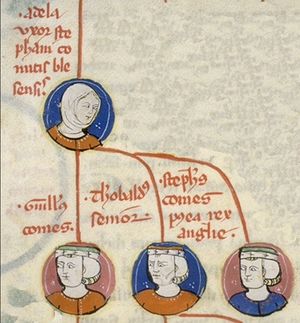 ·adela
vxor ste
phani co
mitis ble
sensis·
·Guill's
comes·
·thobald'
senior·
·steph's
comes
postea rex
anglie·